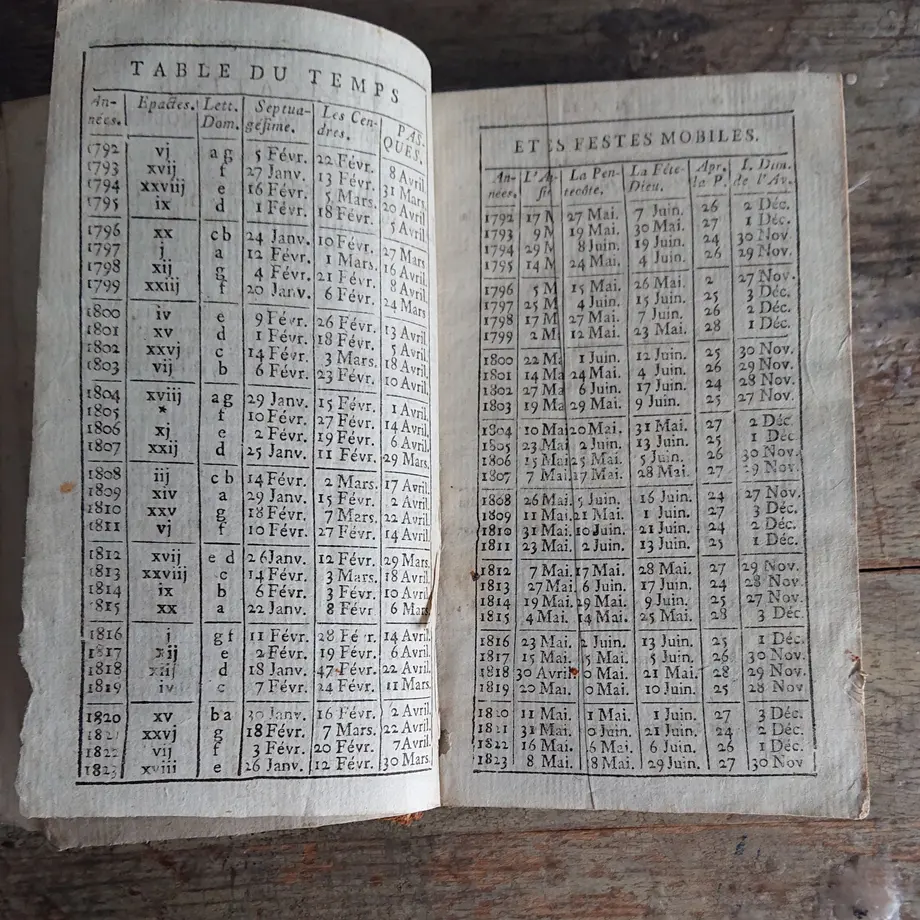 TABLE DU TEMPS
An- Epactes. Lett. Septua- Les Cen- PAS-
nées. Dom. gésime. dres. QUES.
1792 vj a g 5 Févr. 22 Févr. 8 Avril
1793 xvij f 27 Janv. 13 Févr. 31 Mars
1794 xxviij e 16 Févr. 5 Mars 20 Avril
1795 ix d 1 Févr. 18 Févr. 5 Avril
1796 xx c b 24 Janv. 10 Févr. 27 Mars
1797 j a 12 Févr. 1 Mars. 16 Avril
1798 xij g 4 Févr. 21 Févr. 8 Avril
1799 xxiij f 20 Janv. 6 Févr. 24 Mars
1800 iv e 9 Févr. 26 Févr. 13 Avril
1801 xv d 1 Févr. 18 Févr. 5 Avril
1802 xxvj c 14 Févr. 3 Mars. 18 Avril
1803 vij b 6 Févr. 23 Févr. 10 Avril
1804 xviij a g 29 Janv. 15 Févr. 1 Avril
1805 * f 10 Févr. 27 Févr. 14 Avril
1806 xj e 2 Févr. 19 Févr. 6 Avril
1807 xxij d 25 Janv. 11 Févr. 29 Mars.
1808 iij c b 14 Févr. 2 Mars. 17 Avril.
1809 xiv a 29 Janv. 15 Févr. 2 Avril.
1810 xxv g 18 Févr. 7 Mars. 22 Avril.
1811 vj f 10 Févr. 27 Févr. 14 Avril.
1812 xvij e d 26 Janv. 12 Févr. 29 Mars.
1813 xxviij c 14 Févr. 3 Mars. 18 Avril.
1814 ix b 6 Févr. 3 Févr. 10 Avril.
1815 xx a 22 Janv. 8 Févr. 6 Mars
1816 j g f 11 Févr. 28 Févr. 14 Avril.
1817 xij e 2 Févr. 19 Févr. 6 Avril.
1818 xiij d 18 Janv. 47 Févr. 22 Avril.
1819 iv c 7 Févr. 24 Févr. 11 Mars.
1820 xv b a 30 Janv. 16 Févr. 2 Avril
1821 xxvj g 18 Févr. 7 Mars. 22 Avril.
1822 vij f 3 Févr. 20 Févr. 7 Avril
1823 xviij e 26 Janv. 12 Févr. 30 Mars.
ET ES FESTES MOBILES.
An- L'A La Pen- La Fête- Apr. I. Dim.
nées. tecôte. Dieu. la P. de l'Av.
1792 17 M 27 Mai. 7 Juin. 26 2 Déc.
1793 9 M 19 Mai. 30 Mai. 27 1 Déc.
1794 29 M 8 Juin. 19 Juin. 24 30 Nov.
1795 14 M 24 Mai. 4 Juin. 26 29 Nov.
1796 5 M 15 Mai. 26 Mai. 2 27 Nov.
1797 25 M 4 Juin. 15 Juin. 25 3 Déc.
1798 17 M 27 Mai. 7 Juin. 26 2 Déc.
1799 2 M 12 Mai. 23 Mai. 28 1 Déc.
1800 22 Ma 1 Juin. 12 Juin. 25 30 Nov.
1801 14 Ma 24 Mai. 4 Juin. 26 29 Nov.
1802 27 Ma 6 Juin. 17 Juin. 24 28 Nov.
1803 19 Ma 29 Mai. 9 Juin. 25 27 Nov.
1804 10 Mai 20 Mai. 31 Mai. 27 2 Déc.
1805 23 Mai. 2 Juin. 13 Juin. 25 1 Déc
1806 15 Mai 25 Mai. 5 Juin. 26 30 Nov.
1807 7 Mai. 17 Mai. 28 Mai. 27 29 Nov.
1808 26 Mai. 5 Juin. 16 Juin. 24 27 Nov.
1809 11 Mai. 21 Mai. 1 Juin. 27 3 Déc.
1810 31 Mai. 10 Juin. 21 Juin. 24 2 Déc.
1811 23 Mai. 2 Juin. 13 Juin. 25 1 Déc.
1812 7 Mai. 17 Mai. 28 Mai. 27 29 Nov.
1813 27 Mai. 6 Juin. 17 Juin. 24 28 Nov.
1814 19 Mai. 29 Mai. 9 Juin. 25 27 Nov.
1815 4 Mai. 14 Mai. 25 Mai. 28 3 Déc.
1816 23 Mai. 2 Juin. 13 Juin. 25 1 Déc.
1817 15 Mai. 5 Mai. 5 Juin. 26 30 Nov.
1818 30 Avril 0 Mai. 21 Mai. 28 29 Nov.
1819 20 Mai. 0 Mai. 10 Juin. 25 28 Nov.
1820 11 Mai. 1 Mai. 1 Juin. 27 3 Déc.
1821 31 Mai. 0 Juin. 21 Juin. 24 2 Déc.
1822 16 Mai. 6 Mai. 6 Juin. 26 1 Déc.
1823 8 Mai. 8 Mai. 29 Juin. 27 30 Nov